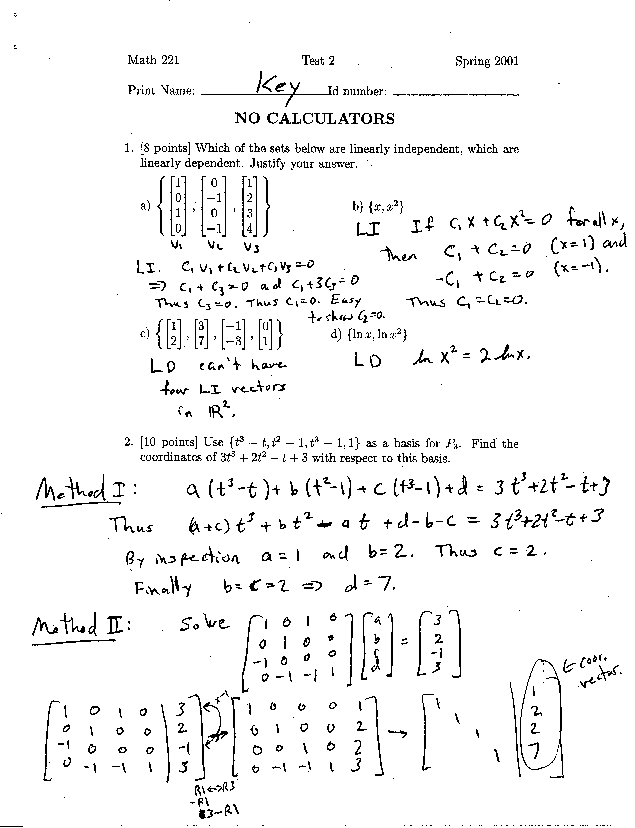 Math 221 Test 2 Spring 2001
Print Name: Key Id number:
NO CALCULATORS
1. [8 points] Which of the sets below are linearly independent, which are
linearly dependent. Justify your answer.
a) { [1 0 1 0], [0 -1 0 -1], [1 2 3 4] }
V1 V2 V3
LI. C1V1+C2V2+C3V3=0
=> C1+C3=0 and C1+3C3=0
Thus C3=0. Thus C1=0. Easy
to show C2=0.
b) {x, x²}
LI If C1X + C2X²=0 for all x,
Then C1 + C2=0 (x=1) and
-C1 + C2=0 (x=-1).
Thus C1=C2=0.
c) { [1 2], [3 7], [-1 -3], [0 1] }
LD can't have
four LI vectors
in ℝ².
d) {ln x, ln x²}
LD ln x² = 2 ln x.
2. [10 points] Use {t³ − t, t² − 1, t³ − 1, 1} as a basis for P₃. Find the
coordinates of 3t³ + 2t² − t + 3 with respect to this basis.
Method I: a(t³-t)+b(t²-1)+c(t³-1)+d = 3t³+2t²-t+3
Thus (a+c)t³+bt²-at+d-b-c = 3t³+2t²-t+3
By inspection a=1 and b=2. Thus c=2.
Finally b=c=2 => d=7.
Method II: Solve [1 0 1 0; 0 1 0 0; -1 0 0 0; 0 -1 -1 1] [a b c d] = [3 2 -1 3]
← coor.
vector.
[1 0 1 0 | 3; 0 1 0 0 | 2; -1 0 0 0 | -1; 0 -1 -1 1 | 3] [1 0 0 0 1; 0 1 0 0 2; 0 0 1 0 2; 0 -1 -1 1 3] → [1 1 1 1 | 1 2 2 7]
R1↔R3
-R1
R3-R1